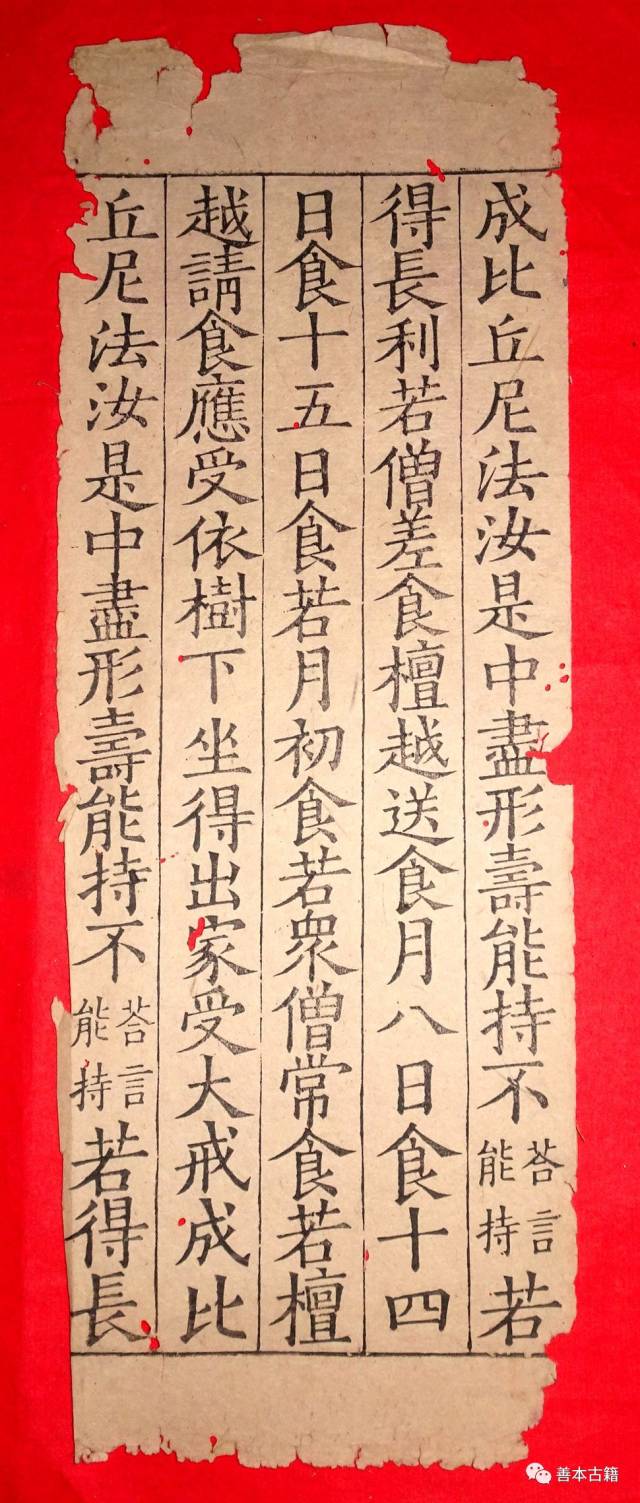 成比丘尼法汝是中盡形壽能持不荅言能持若
得長利若僧差食檀越送食月八日食十四
日食十五日食若月初食若衆僧常食若檀
越請食應受依樹下坐得出家受大戒成比
丘尼法汝是中盡形壽能持不荅言能持若得長
善本古籍